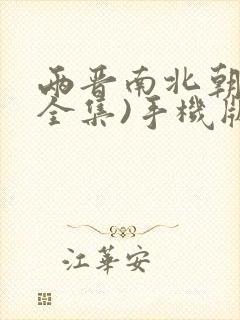 兩晉南北朝
全集)手機版
江華安